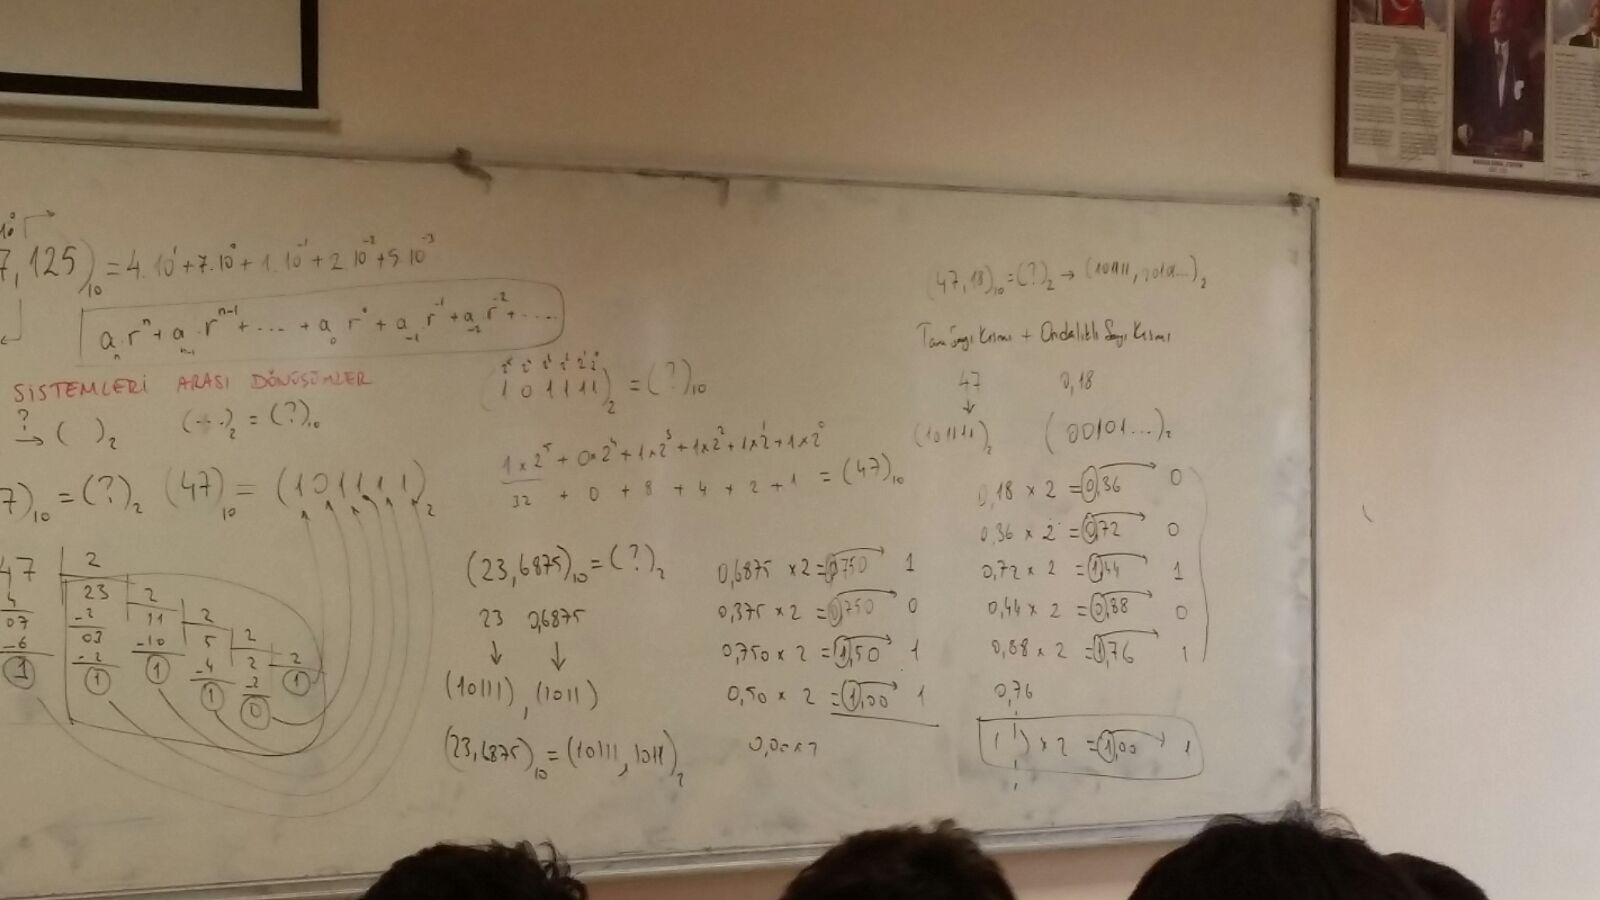 10⁰
7,125)₁₀ = 4.10¹ + 7.10⁰ + 1.10⁻¹ + 2.10⁻² + 5.10⁻³
aₙ.rⁿ + aₙ₋₁.rⁿ⁻¹ + .... + a₀ r⁰ + a₋₁ r⁻¹ + a₋₂ r⁻² + ....
SİSTEMLERİ ARASI DÖNÜŞÜMLER
? → ( )₂ (...)₂ = (?)₁₀
7)₁₀ = (?)₂ (47)₁₀ = (101111)₂
47 2
23 2
07 -2 11 2
-6 03 -10 5 2
1 -2 1 -4 2 2
1 1 -2 1
0
2⁵ 2⁴ 2³ 2² 2¹ 2⁰
(101111)₂ = (?)₁₀
1x2⁵ + 0x2⁴ + 1x2³ + 1x2² + 1x2¹ + 1x2⁰
32 + 0 + 8 + 4 + 2 + 1 = (47)₁₀
(23,6875)₁₀ = (?)₂
23 0,6875
↓ ↓
(10111) , (1011)
(23,6875)₁₀ = (10111,1011)₂
0,6875 x 2 = 0,750 1
0,375 x 2 = 0,750 0
0,750 x 2 = 1,50 1
0,50 x 2 = 1,00 1
0,00 x 2
(47,18)₁₀ = (?)₂ →
Tam Sayı Kısmı + Ondalıklı Sayı Kısmı
47 0,18
↓
(101111)₂ (00101...)₂
0,18 x 2 = 0,36 0
0,36 x 2 = 0,72 0
0,72 x 2 = 1,44 1
0,44 x 2 = 0,88 0
0,88 x 2 = 1,76 1
0,76
( ) x 2 = 1,00 1